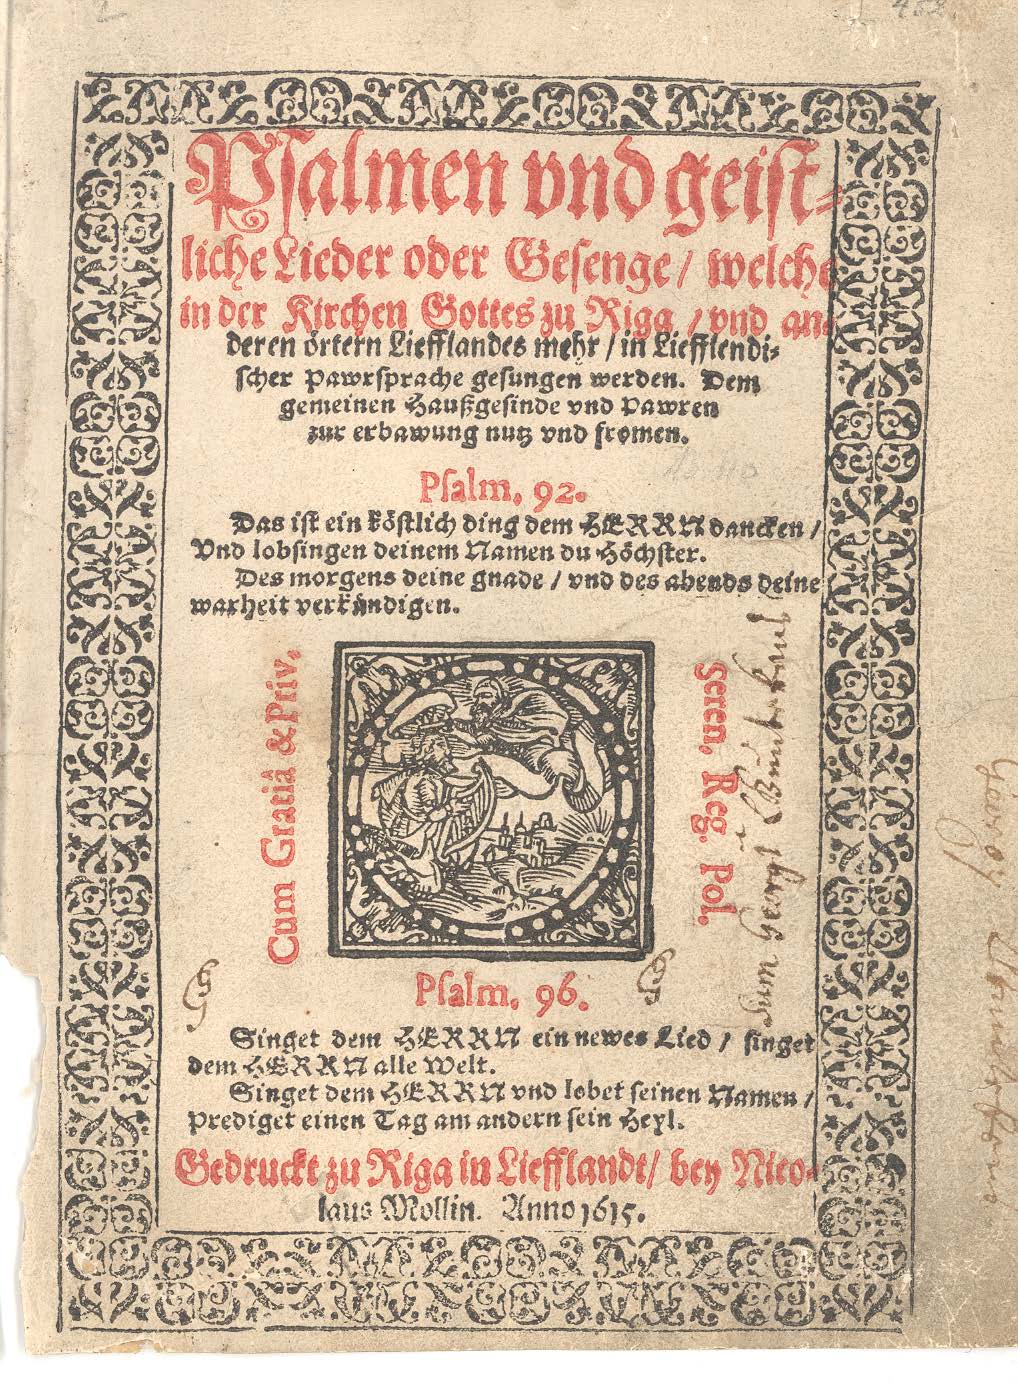 Psalmen vnd geist-
liche Lieder oder Gesenge / welche
in der Kirchen Gottes zu Riga / vnd an-
deren örtern Liefflandes mehr / in Liefflendi-
scher Pawrsprache gesungen werden. Dem
gemeinen Haußgesinde vnd Pawren
zur erbawung nutz vnd fromen.
Psalm. 92.
Das ist ein köstlich ding dem HERRN dancken /
Vnd lobsingen deinem Namen du Höchster.
Des morgens deine gnade / vnd des abends deine
warheit verkündigen.
Cum Gratiâ & Priv.
Seren. Reg. Pol.
Sum Georgi
Psalm. 96.
Singet dem HERRN ein newes Lied / singet
dem HERRN alle Welt.
Singet dem HERRN vnd lobet seinen Namen /
Prediget einen Tag am andern sein Heyl.
Gedruckt zu Riga in Liefflandt / bey Nico-
laus Mollin. Anno 1615.